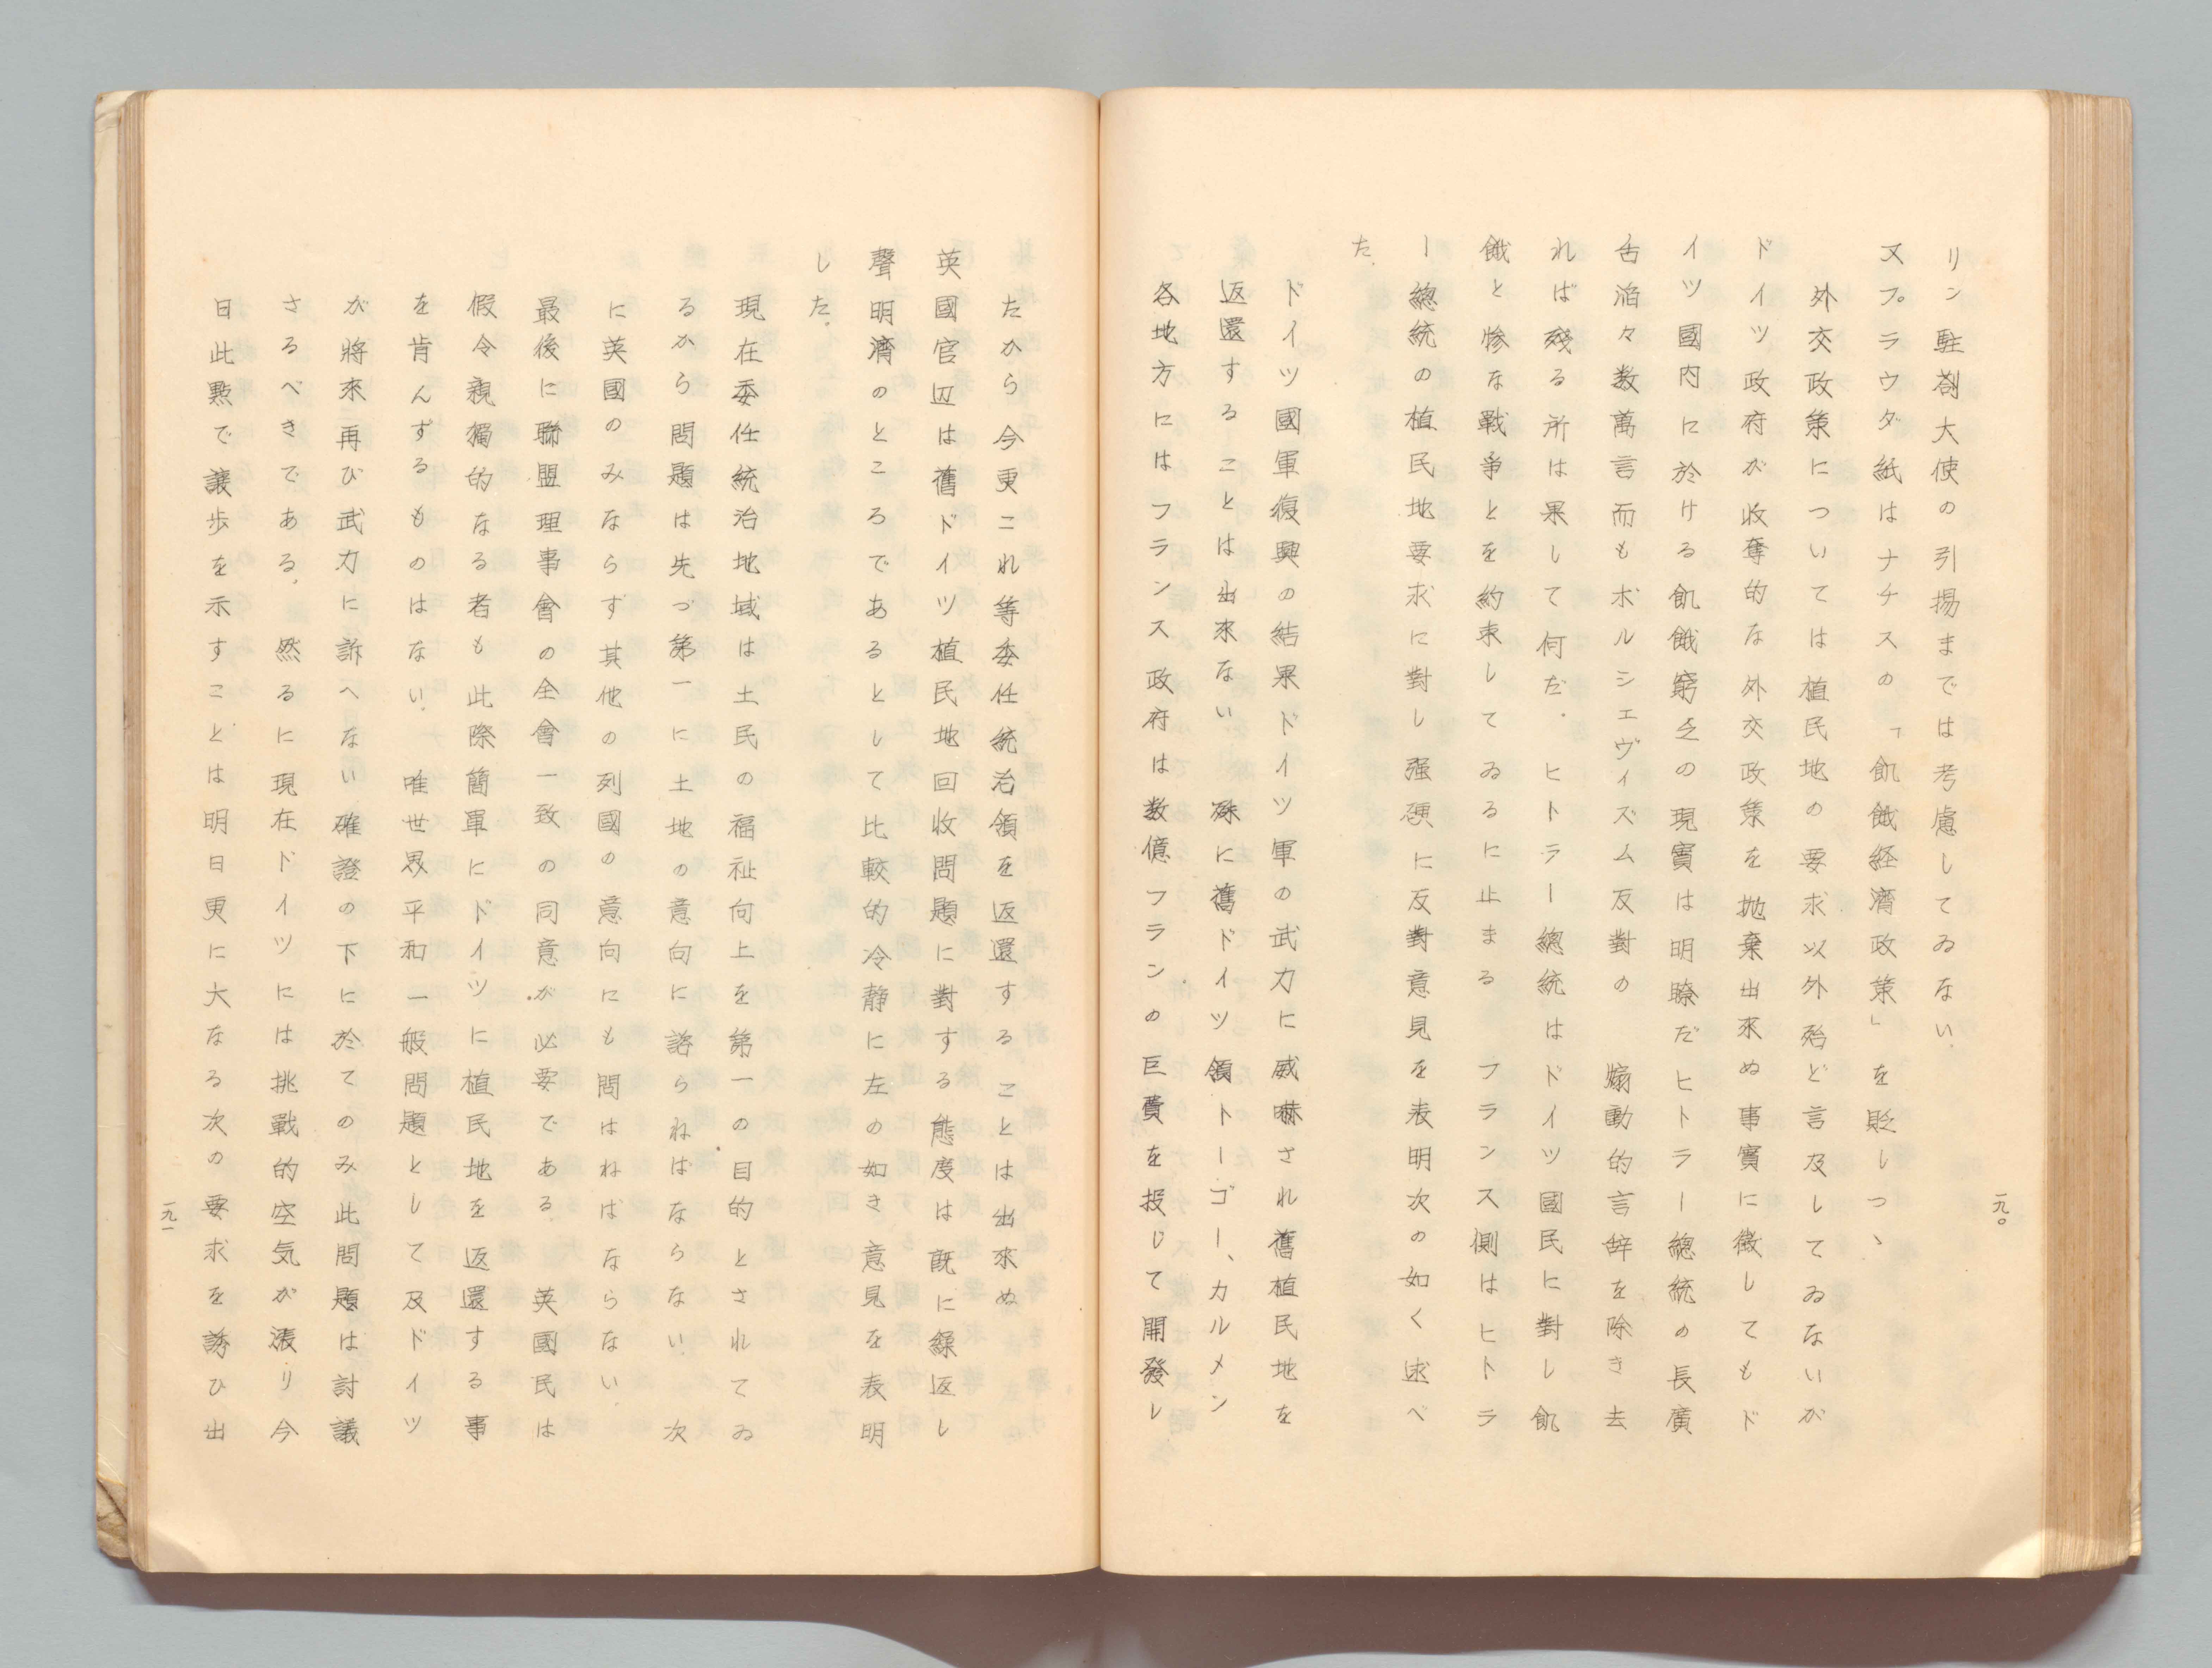 一九〇
リン駐剳大使の引揚までは考慮してゐない.
又プラウダ紙はナチスの「飢餓経濟政策」を貶しつゝ
外交政策については植民地の要求以外殆ど言及してゐないが
ドイツ政府が收奪的な外交政策を拋棄出來ぬ事實に徴してもド
イツ國内に於ける飢餓窮乏の現實は明瞭だヒトラー總統の長廣
舌滔々数萬言而もボルシェヴィズム反對の 煽動的言辞を除き去
れば殘る所は果して何だ. ヒトラー總統はドイツ國民に對し飢
餓と惨な戰爭とを約束してゐるに止まる フランス側はヒトラ
ー總統の植民地要求に對し强硬に反對意見を表明次の如く述べ
た.
ドイツ國軍復興の結果ドイツ軍の武力に威嚇され舊植民地を
返還することは出來ない. 殊に舊ドイツ領トーゴー、カルメン
各地方にはフランス政府は数億フランの巨費を投じて開發し
たから今更これ等委任統治領を返還することは出來ぬ
英國官辺は舊ドイツ植民地回收問題に對する態度は既に繰返し
聲明濟のところであるとして比較的冷静に左の如き意見を表明
した.
現在委任統治地域は土民の福祉向上を第一の目的とされてゐ
るから問題は先づ第一に土地の意向に諮らねばならない. 次
に英國のみならず其他の列國の意向にも問はねばならない.
最後に聯盟理事會の全會一致の同意が必要である. 英國民は
假令親獨的なる者も此際簡單にドイツに植民地を返還する事
を肯んずるものはない. 唯世界平和一般問題として及ドイツ
が將來再び武力に訴へない確證の下に於てのみ此問題は討議
さるべきである. 然るに現在ドイツには挑戰的空気が漲り今
日此點で讓歩を示すことは明日更に大なる次の要求を誘ひ出
一九一